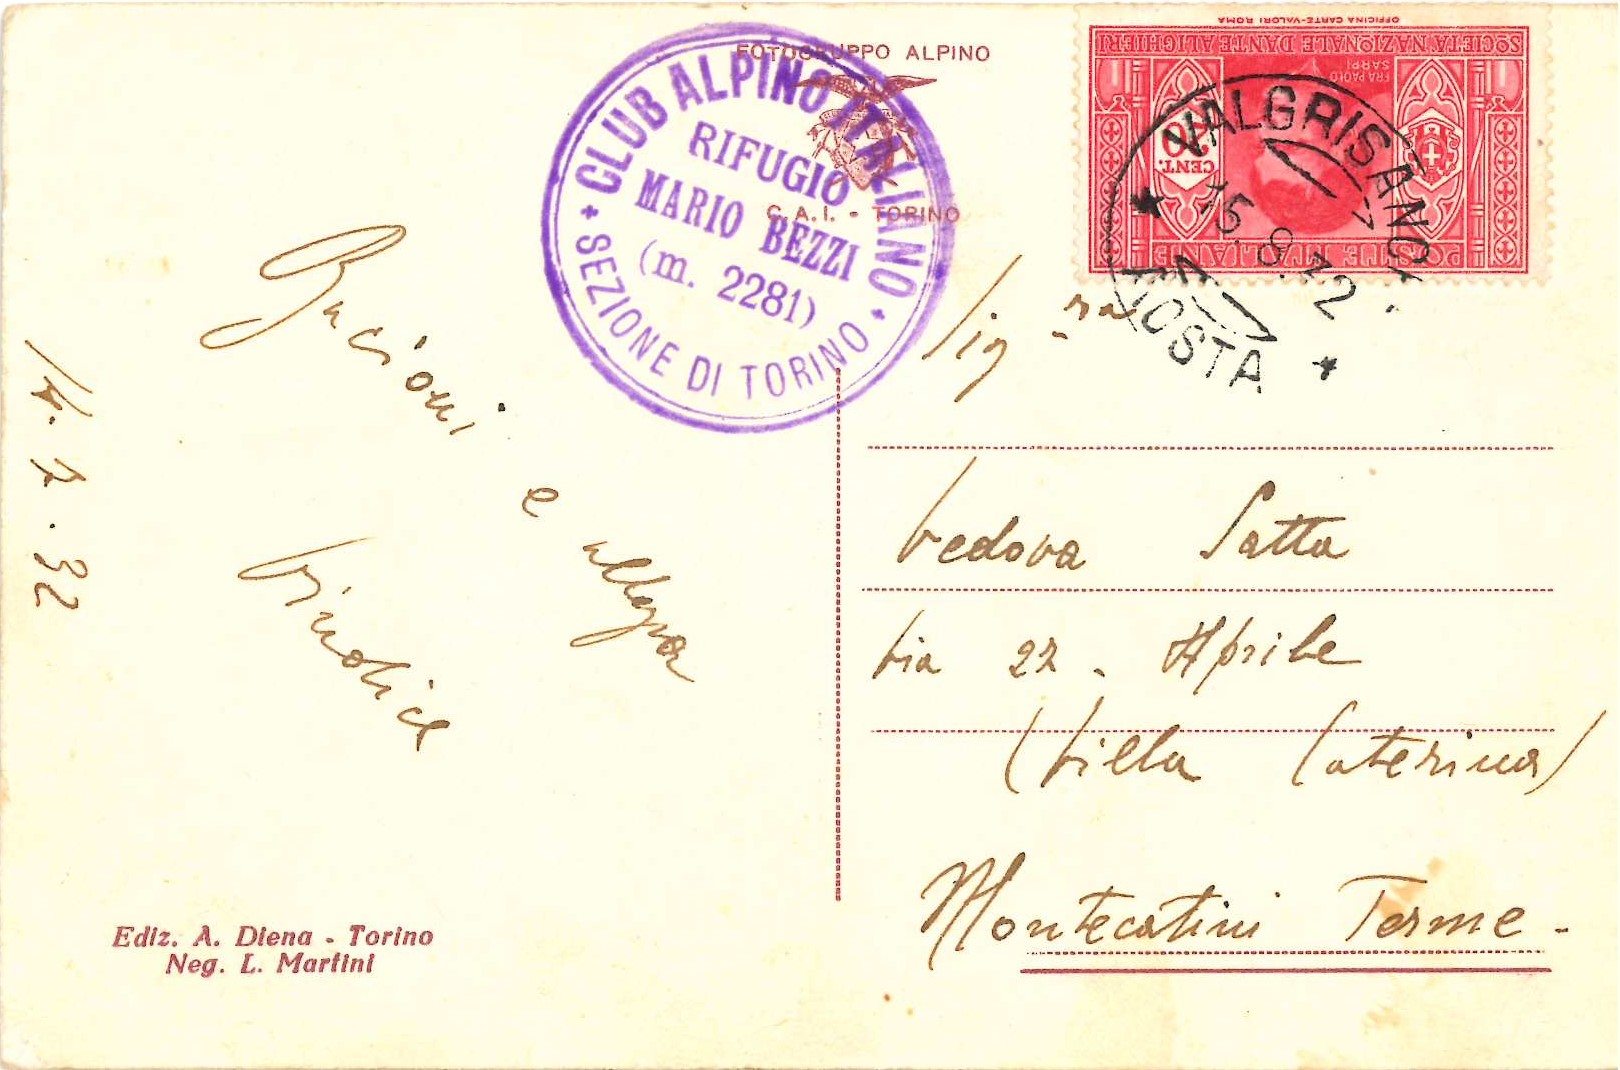 FOTOGRUPPO ALPINO
C.A.I. - TORINO
CLUB ALPINO ITALIANO
RIFUGIO
MARIO BEZZI
(m. 2281)
SEZIONE DI TORINO
OFFICINA CARTE-VALORI ROMA
SOCIETÀ NAZIONALE DANTE ALIGHIERI
FRA PAOLO
SARPI
CENT.
POSTE ITALIANE
VALGRISANCHE
15.8.32
AOSTA
Bacioni e
32
Sig.ra
Vedova Satta
Via 22 - Aprile
(Villa Caterina)
Montecatini Terme -
Ediz. A. Diena - Torino
Neg. L. Martini